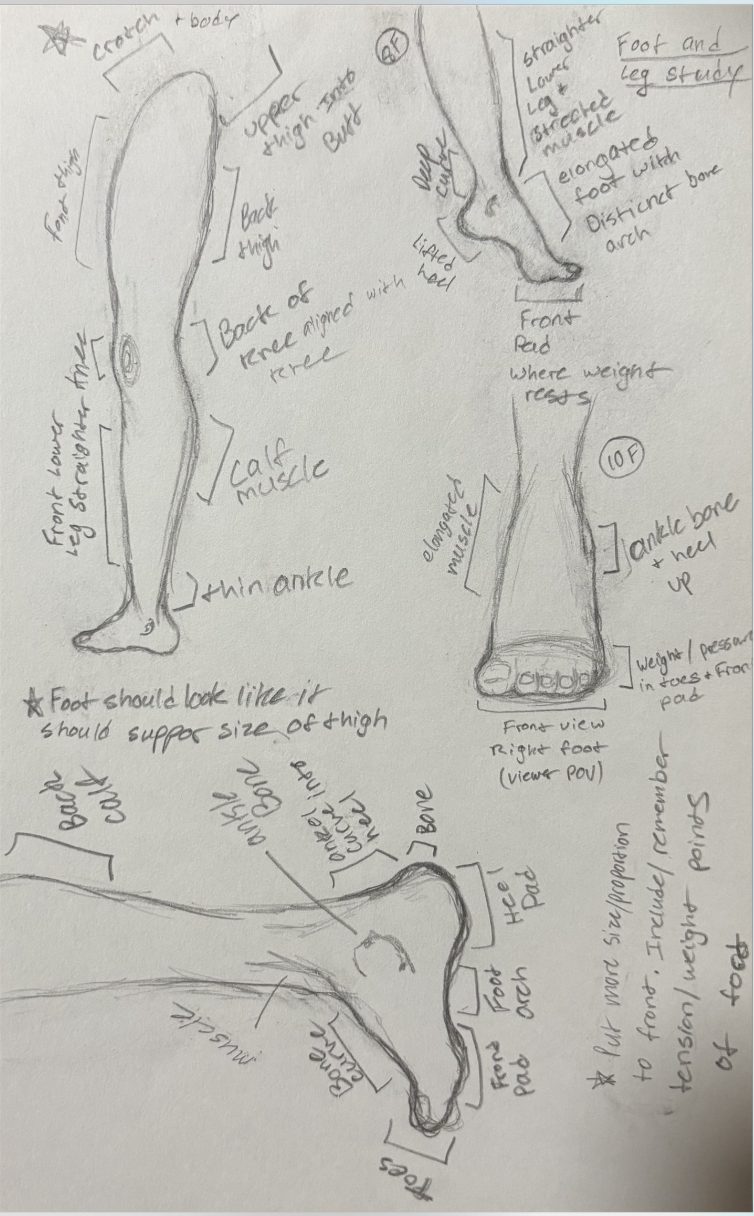 Foot and
Leg study
crotch + body
upper
thigh into
Butt
Font thigh
Back
thigh
Back of
knee aligned with
knee
knee
Front Lower
Leg Straighter
calf
muscle
thin ankle
★ Foot should look like it
should suppor size of thigh
8F
straighter
Lower
Leg +
streched
muscle
Deep
curve
elongated
foot with
Disticnct bone
arch
Lifted
heel
Front
Pad
where weight
rests
10F
elongated
muscle
ankle bone
+ heel
up
Weight/pressure
in toes + Fron
pad
Front view
Right foot
(viewer POV)
Back
calf
ankle
Bone
ankel into
curve into
heel
Bone
Heel
Pad
Foot
arch
Front
Pad
muscle
Bone
curve
toes
★ Put more size/proportion
to front. Include/remember
tension/weight points
of foot